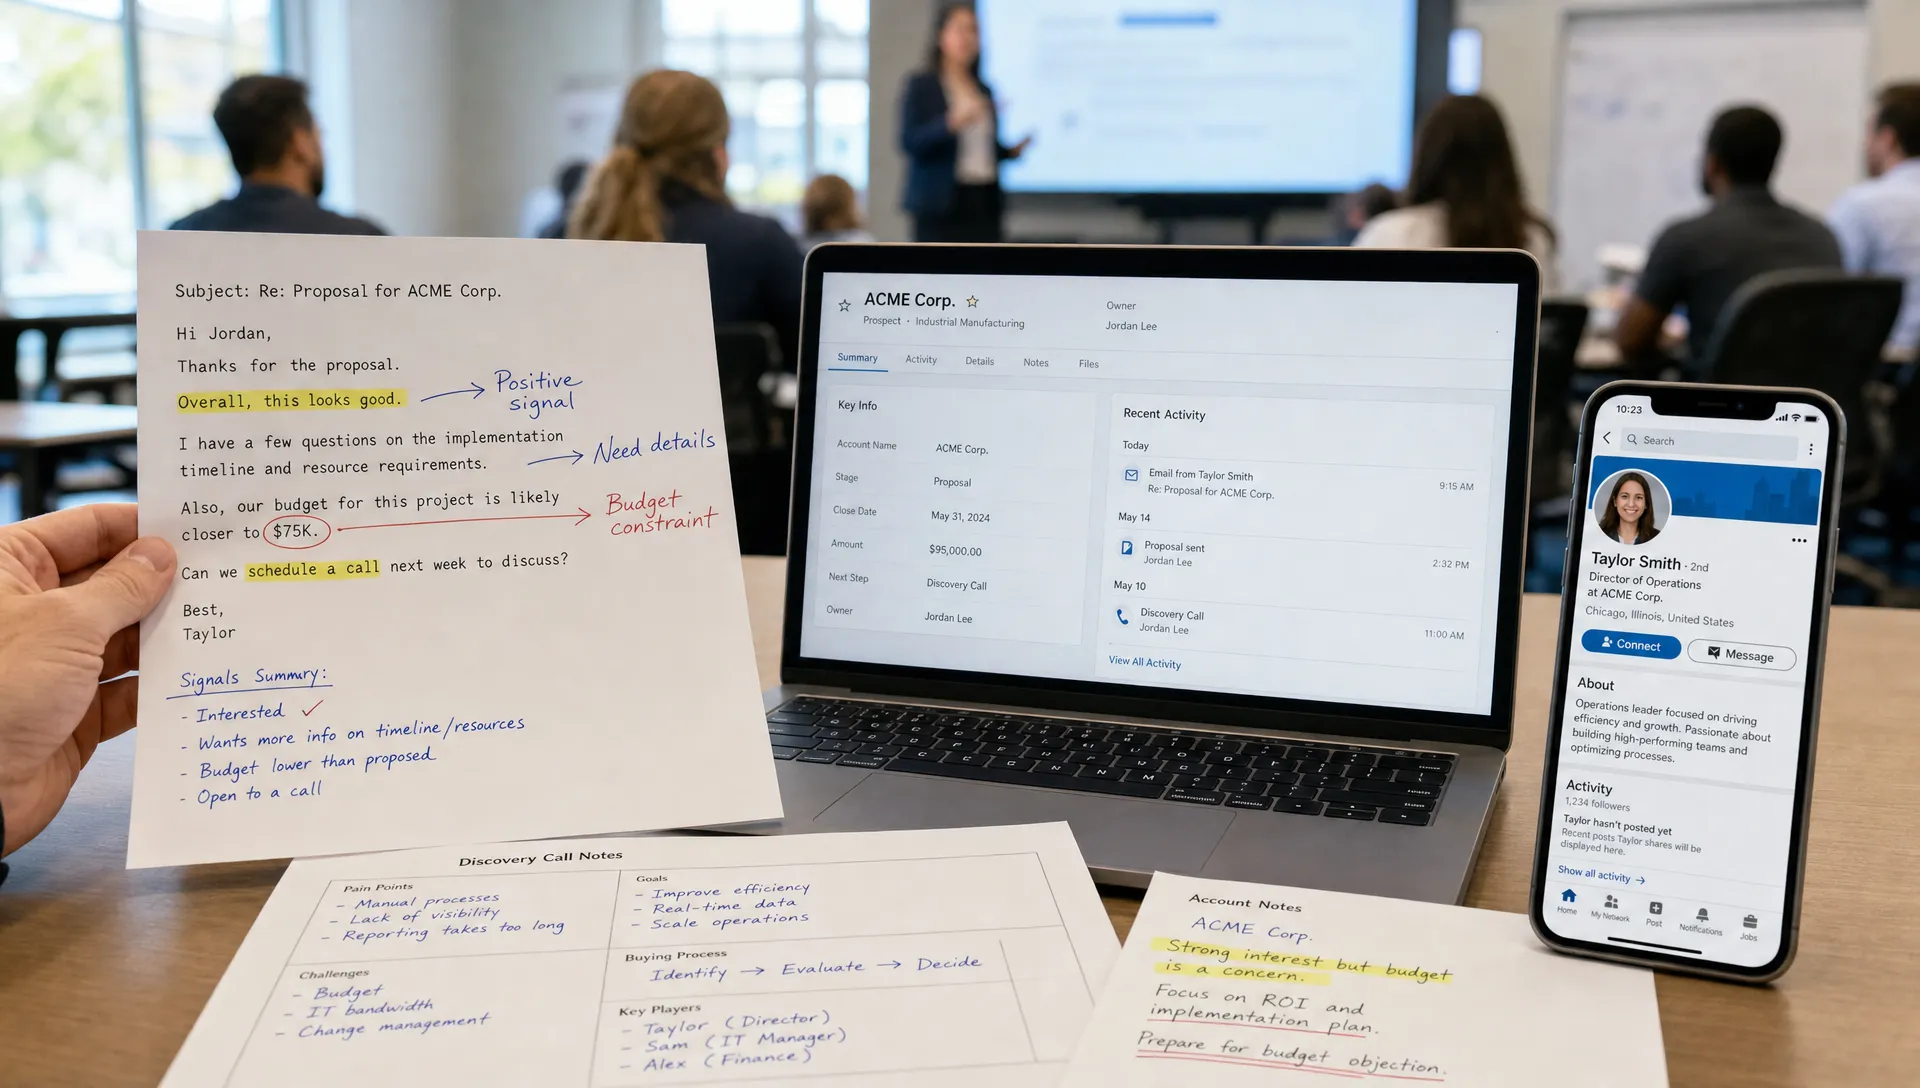 Subject: Re: Proposal for ACME Corp.
Hi Jordan,
Thanks for the proposal.
Overall, this looks good.
Positive
signal
I have a few questions on the implementation
timeline and resource requirements.
Need details
Also, our budget for this project is likely
closer to $75K.
Budget
constraint
Can we schedule a call next week to discuss?
Best,
Taylor
Signals Summary:
- Interested ✓
- Wants more info on timeline/resources
- Budget lower than proposed
- Open to a call
ACME Corp.
Prospect · Industrial Manufacturing
Owner
Jordan Lee
Summary
Activity
Details
Notes
Files
Key Info
Account Name
ACME Corp.
Stage
Proposal
Close Date
May 31, 2024
Amount
$95,000.00
Next Step
Discovery Call
Owner
Jordan Lee
Recent Activity
Today
Email from Taylor Smith
Re: Proposal for ACME Corp.
9:15 AM
May 14
Proposal sent
Jordan Lee
2:32 PM
May 10
Discovery Call
Jordan Lee
11:00 AM
View All Activity
10:23
Search
Taylor Smith · 2nd
Director of Operations
at ACME Corp.
Chicago, Illinois, United States
Connect
Message
About
Operations leader focused on driving
efficiency and growth. Passionate about
building high-performing teams and
optimizing processes.
Activity
1,234 followers
Taylor hasn't posted yet
Recent posts Taylor shares will be
displayed here.
Show all activity →
Home
My Network
Post
Notifications
Jobs
Discovery Call Notes
Pain Points
- Manual processes
- Lack of visibility
- Reporting takes too long
Goals
- Improve efficiency
- Real-time data
- Scale operations
Buying Process
Identify → Evaluate → Decide
Challenges
- Budget
- IT bandwidth
- Change management
Key Players
- Taylor (Director)
- Sam (IT Manager)
- Alex (Finance)
Account Notes
ACME Corp.
Strong interest but budget
is a concern.
Focus on ROI and
implementation plan.
Prepare for budget objection.